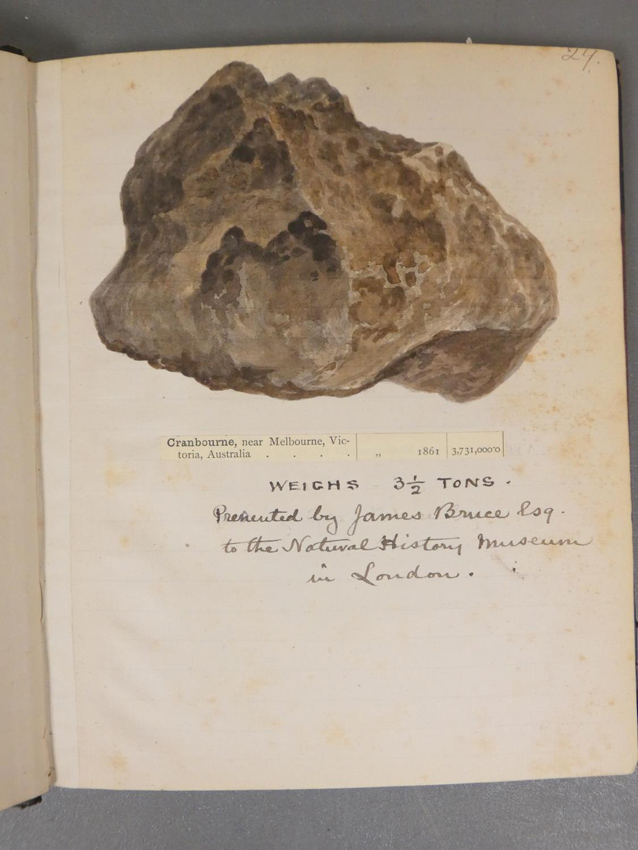 27.
Cranbourne, near Melbourne, Vic-
toria, Australia . . . . „ 1861 3,731,000·0
WEIGHS 3½ TONS.
Presented by James Bruce Esq.
to the Natural History Museum
in London.